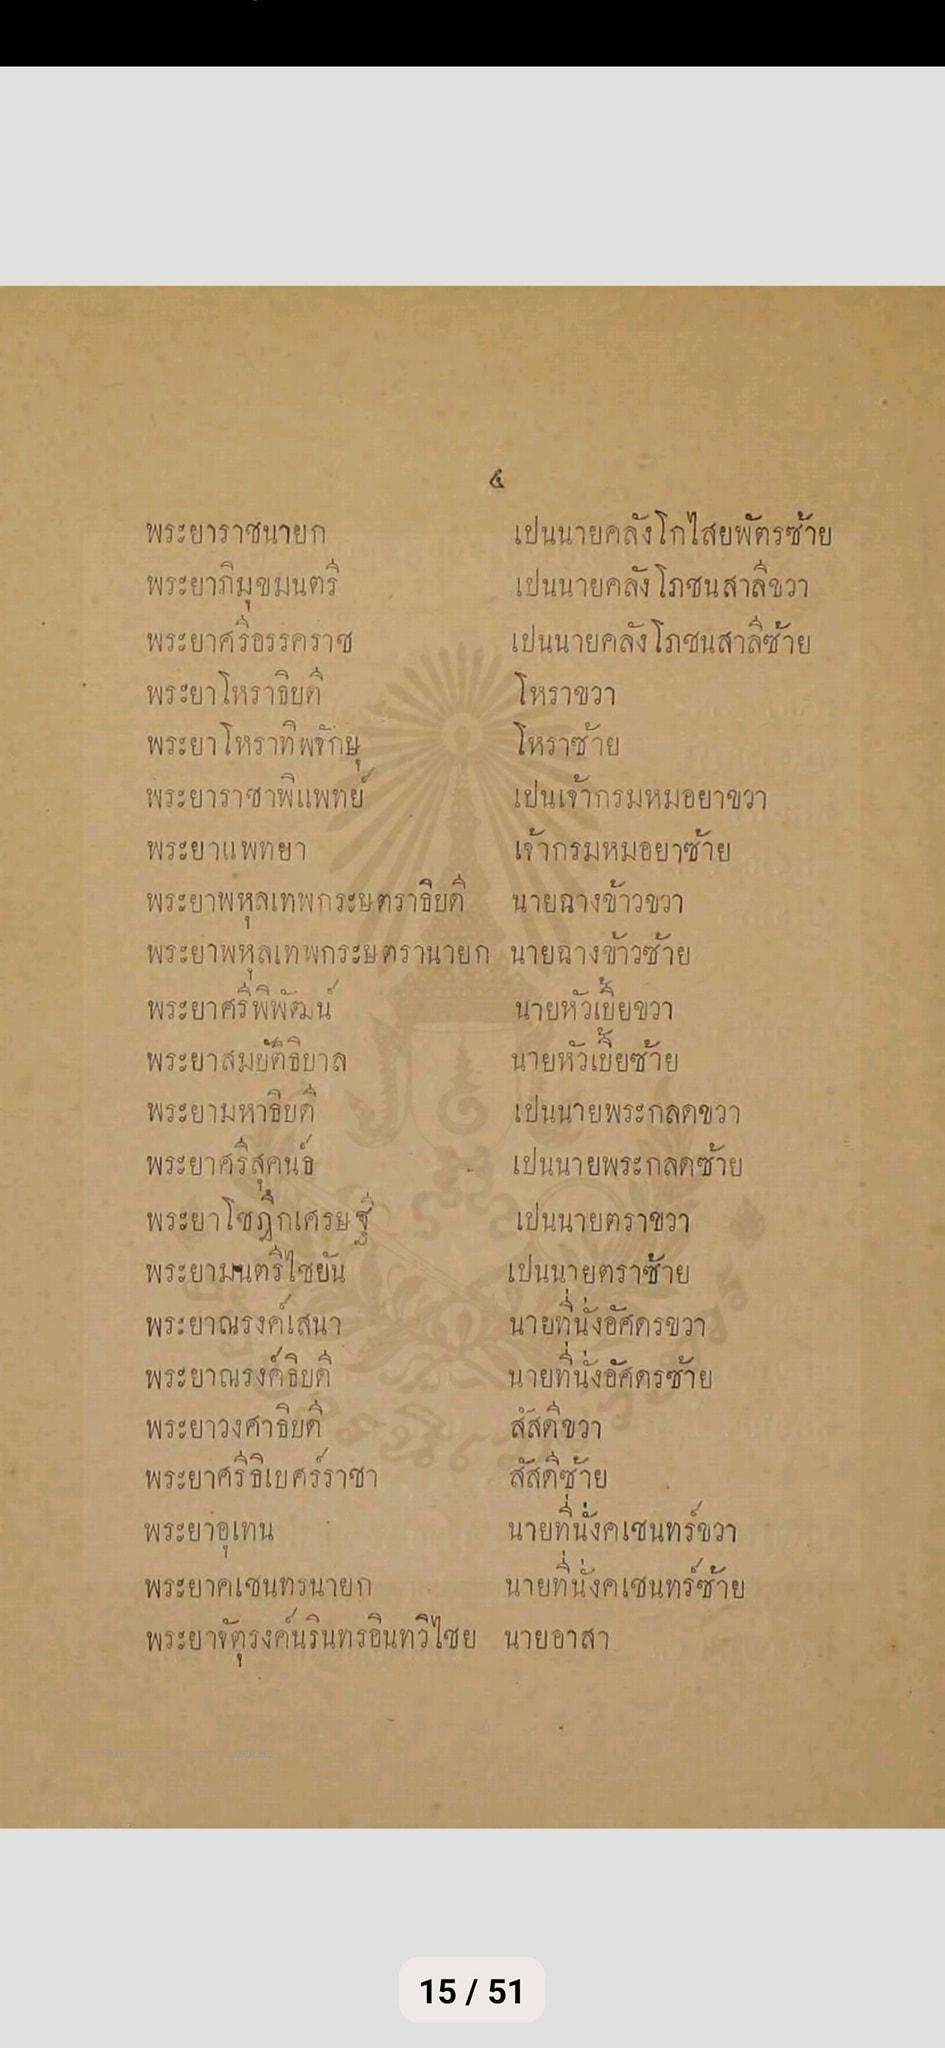 ๕
พระยาราชนายก เปนนายคลังโกไสยพัตรซ้าย
พระยาภิมุขมนตรี เปนนายคลังโภชนสาลีขวา
พระยาศรีอรรคราช เปนนายคลังโภชนสาลีซ้าย
พระยาโหราธิบดี โหราขวา
พระยาโหราทิพจักษุ โหราซ้าย
พระยาราชาพิแพทย์ เปนเจ้ากรมหมอยาขวา
พระยาแพทยา เจ้ากรมหมอยาซ้าย
พระยาพหุลเทพกระษตราธิบดี นายฉางข้าวขวา
พระยาพหุลเทพกระษตรานายก นายฉางข้าวซ้าย
พระยาศรีพิพัฒน์ นายหัวเบี้ยขวา
พระยาสมบัติธิบาล นายหัวเบี้ยซ้าย
พระยามหาธิบดี เปนนายพระกลดขวา
พระยาศรีสุคนธ์ เปนนายพระกลดซ้าย
พระยาโชฎึกเศรษฐี เปนนายตราขวา
พระยามนตรีไชยัน เปนนายตราซ้าย
พระยาณรงค์เสนา นายที่นั่งอัศดรขวา
พระยาณรงค์ธิบดี นายที่นั่งอัศดรซ้าย
พระยาวงศาธิบดี สัสดีขวา
พระยาศรีธิเบศร์ราชา สัสดีซ้าย
พระยาอุเทน นายที่นั่งคเชนทร์ขวา
พระยาคเชนทรนายก นายที่นั่งคเชนทร์ซ้าย
พระยาจัตุรงค์นรินทรอินทวิไชย นายอาสา
15 / 51